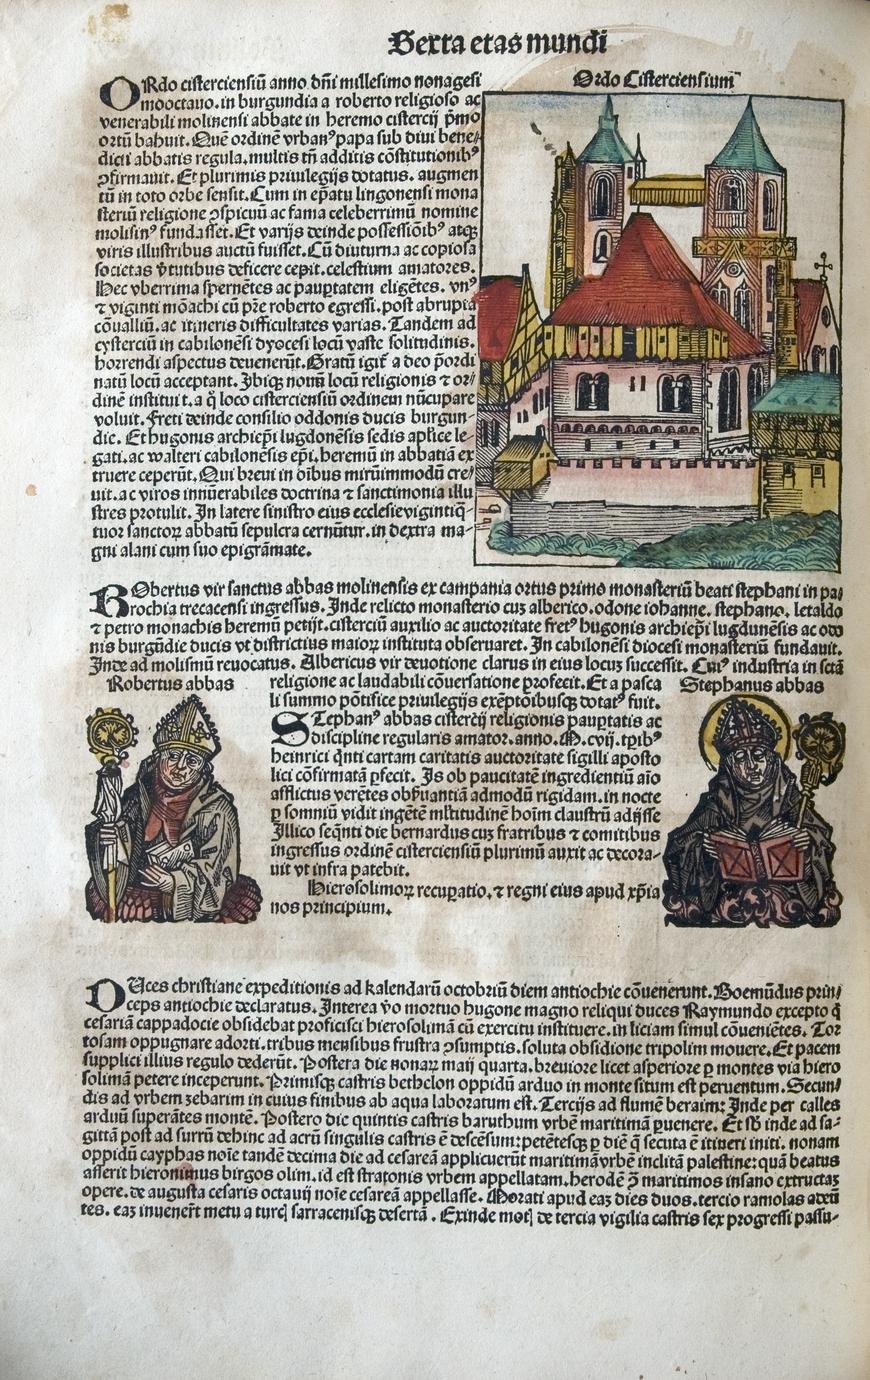 Sexta etas mundi
Ordo Cisterciensium
ORdo cisterciensiū anno dn̄i millesimo nonagesi
mooctauo. in burgundia a roberto religioso ac
venerabili molinensi abbate in heremo cistercij pͥmo
ortū habuit. Quē ordinē vrbanꝰ papa sub diui bene⸗
dicti abbatis regula. multis tn̄ additis cōstitutionibꝰ
ꝯfirmauit. Et plurimis priuilegijs dotatus. augmen
tū in toto orbe sensit. Cum in ep̄atu lingonensi mona
steriū religione ꝯspicuū ac fama celeberrimū nomine
molisinꝰ fundasset. Et varijs deinde possessiōibꝰ atqꝫ
viris illustribus auctū fuisset. Cū diuturna ac copiosa
societas v̓tutibus deficere cepit. celestium amatores.
Hec vberrima spernētes ac paup̱tatem eligētes. vnꝰ
⁊ viginti mōachi cū pr̄e roberto egressi. post abrupta
cōualliū. ac itineris difficultates varias. Tandem ad
cysterciū in cabilonēsi dyocesi locū vaste solitudinis.
horrendi aspectus deuenerūt. Gratū igit̄ a deo p̄ordi
natū locū acceptant. Ibiqꝫ nouū locū religionis ⁊ or⸗
dinē instituit. a q̊ loco cisterciensiū ordinem nūcupare
voluit. Freti deinde consilio oddonis ducis burgun⸗
die. Et hugonis archiep̄i lugdonēsis sedis aplice le⸗
gati. ac walteri cabilonēsis ep̄i. heremū in abbatiā ex
truere ceperūt. Qui breui in oībus mirūimmodū cre⸗
uit. ac viros innūerabiles doctrina ⁊ sanctimonia illu
stres protulit. In latere sinistro eius ecclesie vigintiq̄⸗
tuor sanctoꝝ abbatū sepulcra cernūtur. in dextra ma⸗
gni alani cum suo epigrāmate.
RObertus vir sanctus abbas molinensis ex campania ortus primo monasteriū beati stephani in pa⸗
rochia trecacensi ingressus. Inde relicto monasterio cuꝫ alberico. odone iohanne. stephano. letaldo
⁊ petro monachis heremū petijt. cisterciū auxilio ac auctoritate fretꝰ hugonis archiep̄i lugdunēsis ac odo
nis burgūdie ducis vt districtius maioꝝ instituta obseruaret. In cabilonēsi diocesi monasteriū fundauit.
Inde ad molismū reuocatus. Albericus vir deuotione clarus in eius locuꝫ successit. Cuiꝰ industria in sctā
Robertus abbas
religione ac laudabili cōuersatione ꝓfecit. Et a pasca
li summo pōtifice priuilegijs exēptōibusqꝫ dotatꝰ fuit.
Stephanus abbas
STephanꝰ abbas cistercij religionis paup̱tatis ac
discipline regularis amator. anno. M.cvij. tp̄ibꝰ
heinrici q̇nti cartam caritatis auctoritate sigilli aposto
lici cōfirmatā ꝑfecit. Is ob paucitatē ingredientiū aīo
afflictus verētes obẜuantiā admodū rigidam. in nocte
ꝑ somniū vidit ingētē mltitudinē hoīm claustrū adijsse
Illico seq̄nti die bernardus cuꝫ fratribus ⁊ comitibus
ingressus ordinē cisterciensiū plurimū auxit ac decora⸗
uit vt infra patebit.
Hierosolimoꝝ recuꝑatio. ⁊ regni eius apud xp̄ia
nos principium.
DUces christiane expeditionis ad kalendarū octobriū diem antiochie cōuenerunt. Boemūdus prin⸗
ceps antiochie declaratus. Interea v̓o mortuo hugone magno reliqui duces Raymundo excepto q̇
cesariā cappadocie obsidebat proficisci hierosolimā cū exercitu instituere. in liciam simul cōueniētes. Tor
tosam oppugnare adorti. tribus mensibus frustra ꝯsumptis. soluta obsidione tripolim mouere. Et pacem
supplici illius regulo dederūt. Postera die nonaꝝ maij quarta. breuiore licet asperiore ꝑ montes via hiero
solimā petere inceperunt. Primisqꝫ castris bethelon oppidū arduo in monte situm est peruentum. Secun⸗
dis ad vrbem zebarim in cuius finibus ab aqua laboratum est. Tercijs ad flumē beraim: Inde per calles
arduū superātes montē. Postero die quintis castris baruthum vrbē maritimā ꝑuenere. Et sb̓ inde ad sa⸗
gittā post ad surrū dehinc ad acrū singulis castris ē descēsum: petētesqꝫ ꝑ diē q̄ secuta ē itineri initi. nonam
oppidū cayphas noīe tandē decima die ad cesareā applicuerūt maritimā vrbē inclitā palestine: quā beatus
asserit hieronimus birgos olim. id est stratonis vrbem appellatam. herodē ꝑ maritimos insano extructaꝫ
opere. de augusta cesaris octauij noīe cesareā appellasse. Morati apud eaꝫ dies duos. tercio ramolas adeū
tes. eaꝫ inuenerūt metu a turcꝭ sarracenisqꝫ desertā. Exinde motꝭ de tercia vigilia castris sex progressi passu⸗